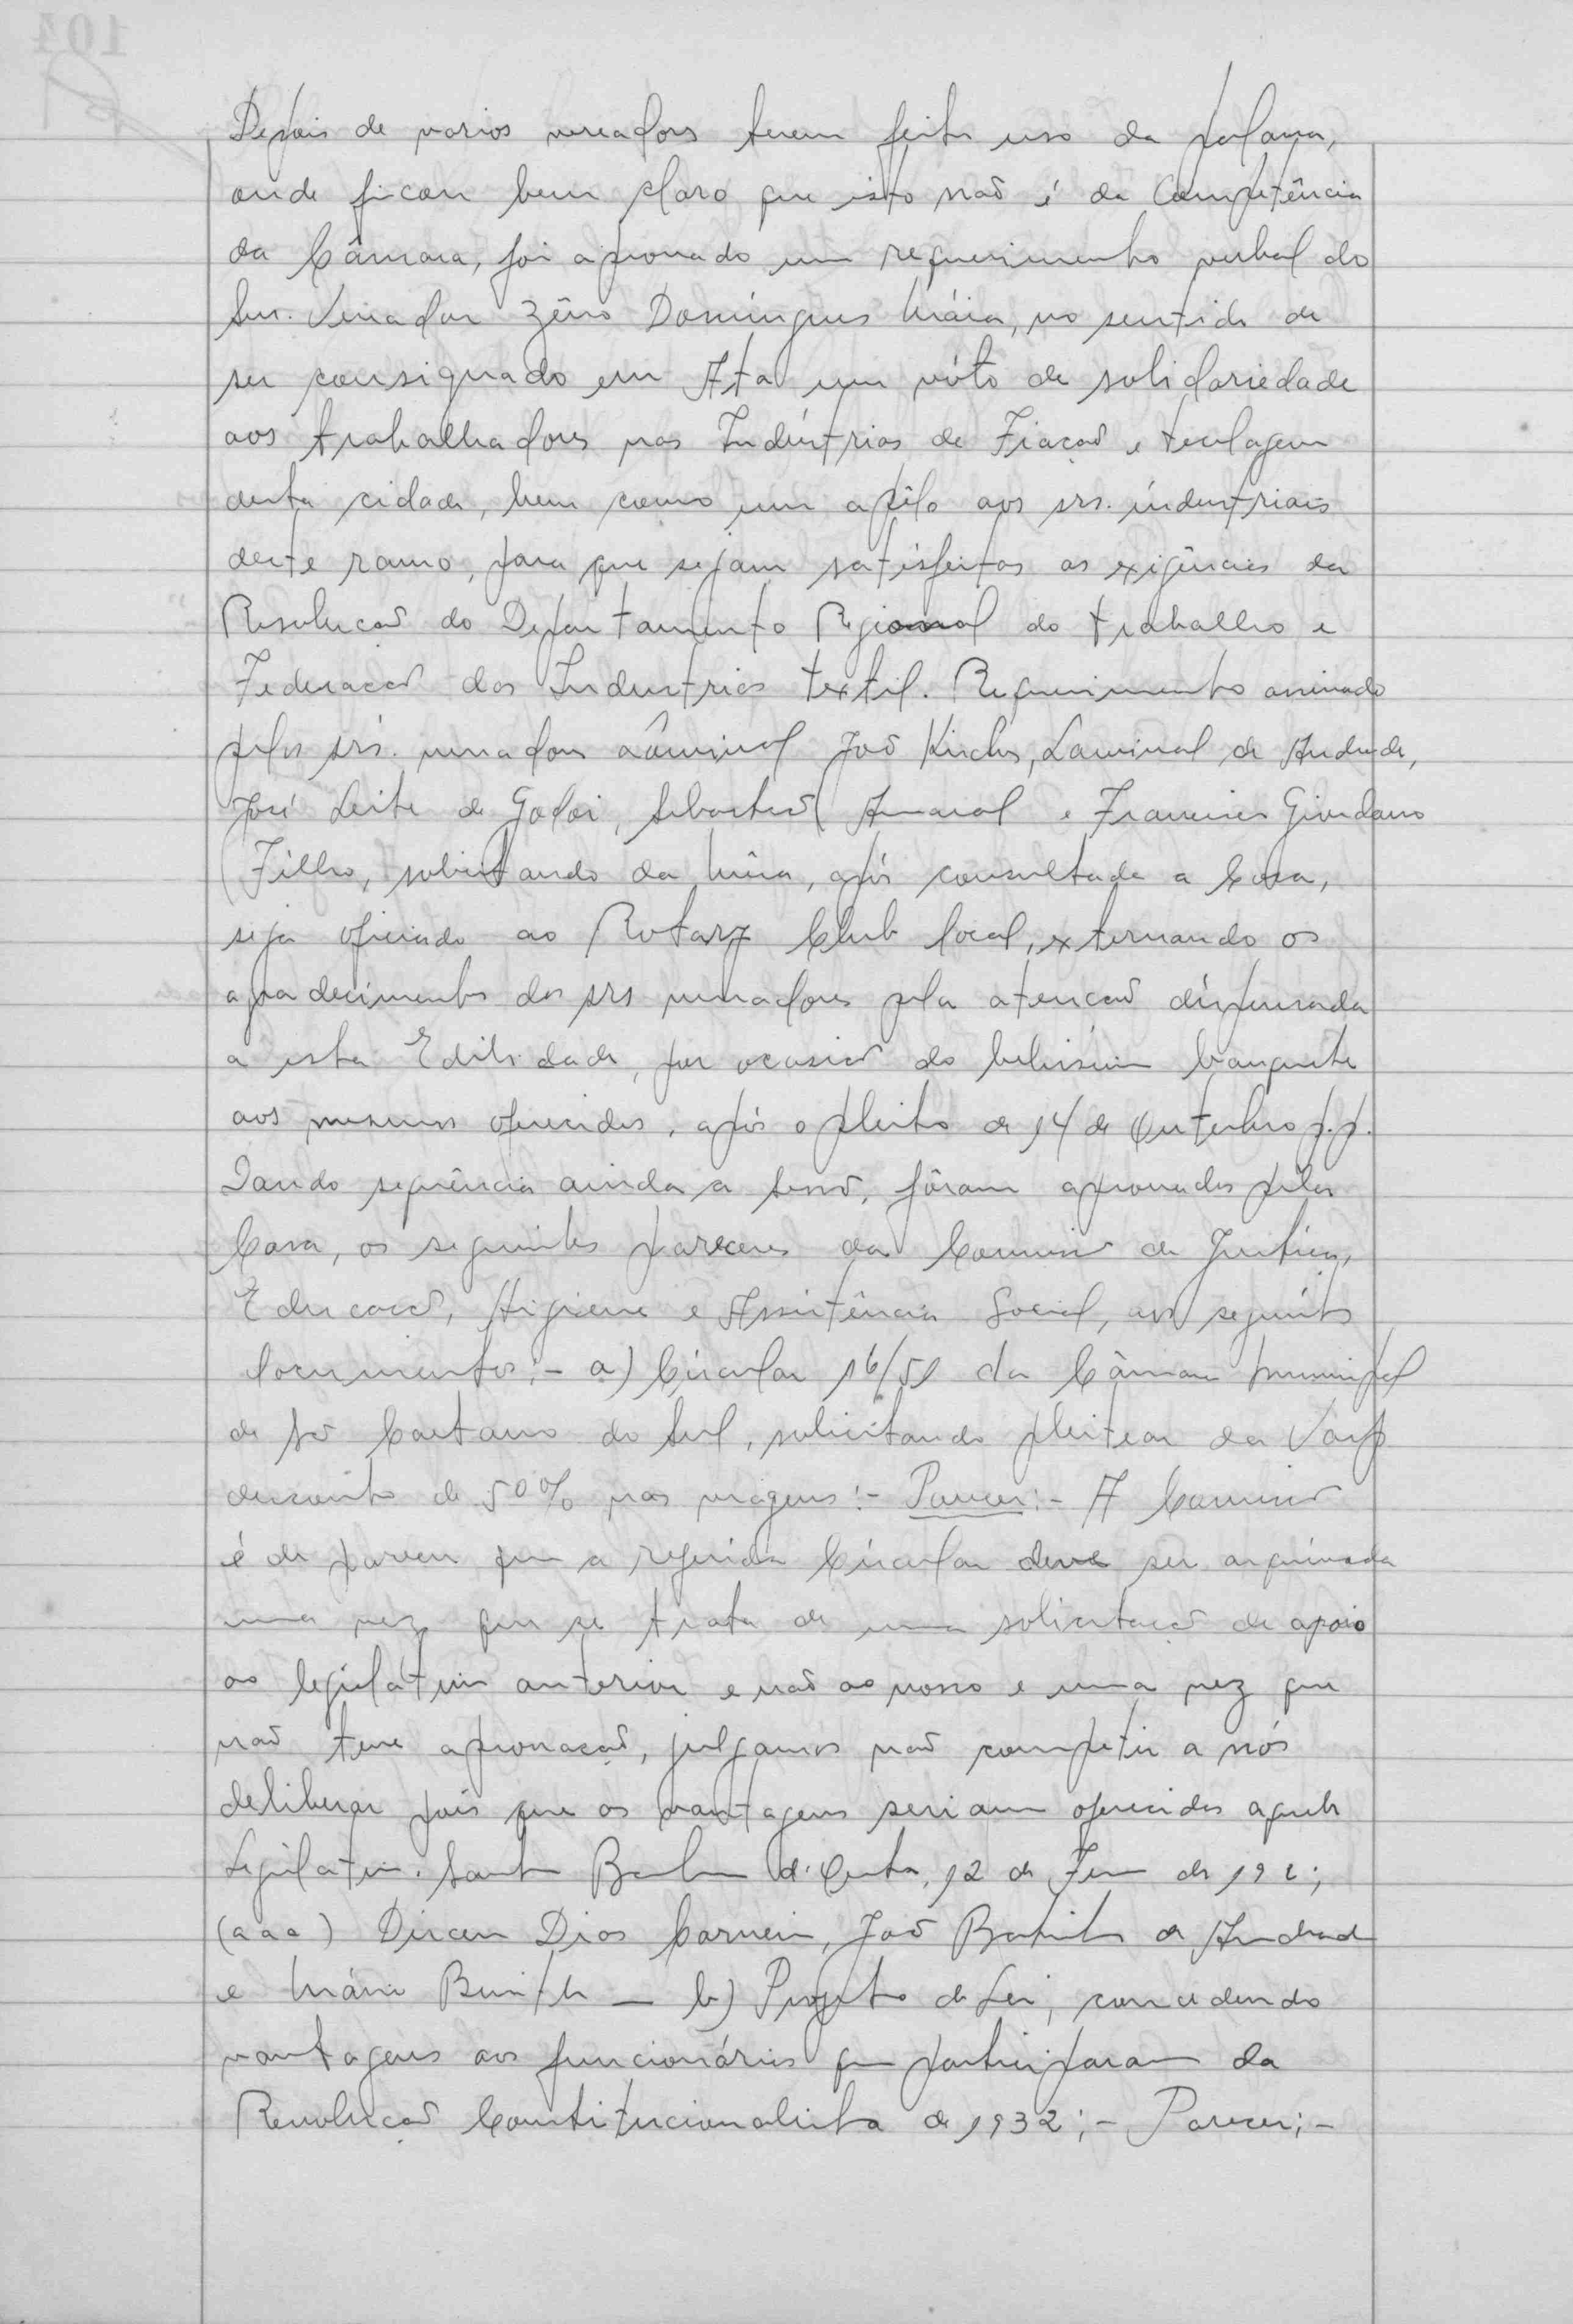 Depois de varios vereadores terem feito uso da palavra,
onde ficou bem claro que isto naõ é da Competência
da Câmara, foi aprovado um requerimento verbal do
Snr. Vereador Zêno Domíngues Máia, no sentido de
ser consignado em Ata um vóto de solidariedade
aos trabalhadores nas Indústrias de Fiaçaõ e tecelagem
desta cidade, bem como um apêlo aos srs. industriais
deste ramo, para que sejam satisfeitas as exigências da
Resoluçaõ do Departamento Regional do trabalho e
Federaçaõ das Industrias textil. Requerimento assinado
pelos srs. vereadores Joaõ Kirche, Laurival de Andrade,
José Leite de Godoi, Sebastiaõ Amaral e Francisco Giordano
Filho, solicitando da Mêsa, após consultada a Casa,
seja oficiado ao Rotary Club local, externando os
agradecimentos dos srs vereadores pela atençaõ dispensada
a esta Edilidade, por ocasiaõ do belissimo banquete
aos mesmos oferecidos, após o pleito de 14 de Outubro p.p.
Dando sequência ainda a sessaõ, fôram aprovados pela
Casa, os seguintes pareceres da Comissaõ de Justiça,
Educaçaõ, Higiene e Assistência Social, aos seguintes
documentos:- a) Circular 16/51 da Câmara Municipal
de Saõ Caetano do Sul, solicitando pleitear da Vasp
desconto de 50% nas viagens:- Parecer:- A Comissaõ
é de parecer que a referida Circular deve ser arquivada
uma vez que se trata de uma solicitaçaõ de apoio
ao legislativo anterior e naõ ao nosso e uma vez que
naõ teve aprovaçaõ, julgamos naõ competir a nós
deliberar pois que as vantagens seriam oferecidas aquele
Legislativo. Santa Barbara d'Oeste, 12 de Fev de
(a a a) Dirceu Dias Carneiro, Joaõ Batista de Andrade
e Mário — b) Projeto de Lei, concedendo
vantagens aos funcionários que participaram da
Revoluçaõ Constitucionalista de 1932;- Parecer;-